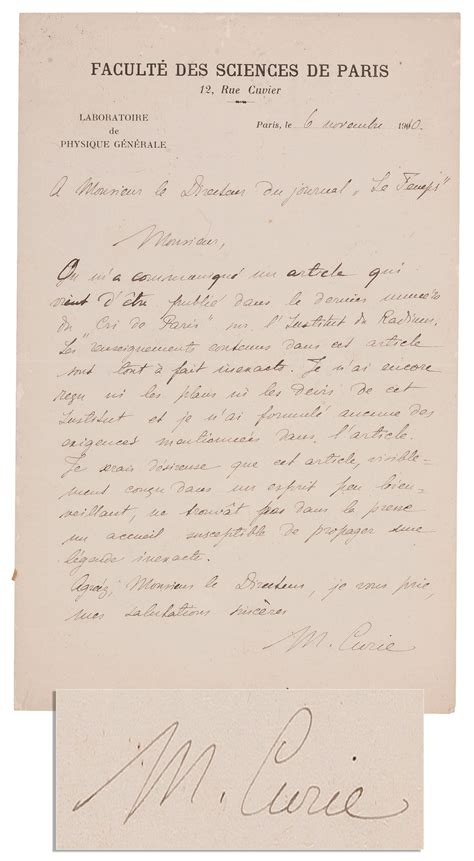 FACULTÉ DES SCIENCES DE PARIS
12, Rue Cuvier
LABORATOIRE
de
PHYSIQUE GÉNÉRALE
Paris, le 6 novembre 1910.
A Monsieur le Directeur du journal "Le Temps"
Monsieur,
On m'a communiqué un article qui
vient d'être publié dans le dernier numéro
du "Cri de Paris" sur l'Institut du Radium.
Les renseignements contenus dans cet article
sont tout à fait inexacts. Je n'ai encore
reçu ni les plans ni les devis de cet
Institut et je n'ai formulé aucune des
exigences mentionnées dans l'article.
Je serais désireuse que cet article, visible-
ment conçu dans un esprit peu bien-
veillant, ne trouvât pas dans la presse
un accueil susceptible de propager une
légende inexacte.
Agréez, Monsieur le Directeur, je vous prie,
mes salutations sincères
M. Curie
M. Curie